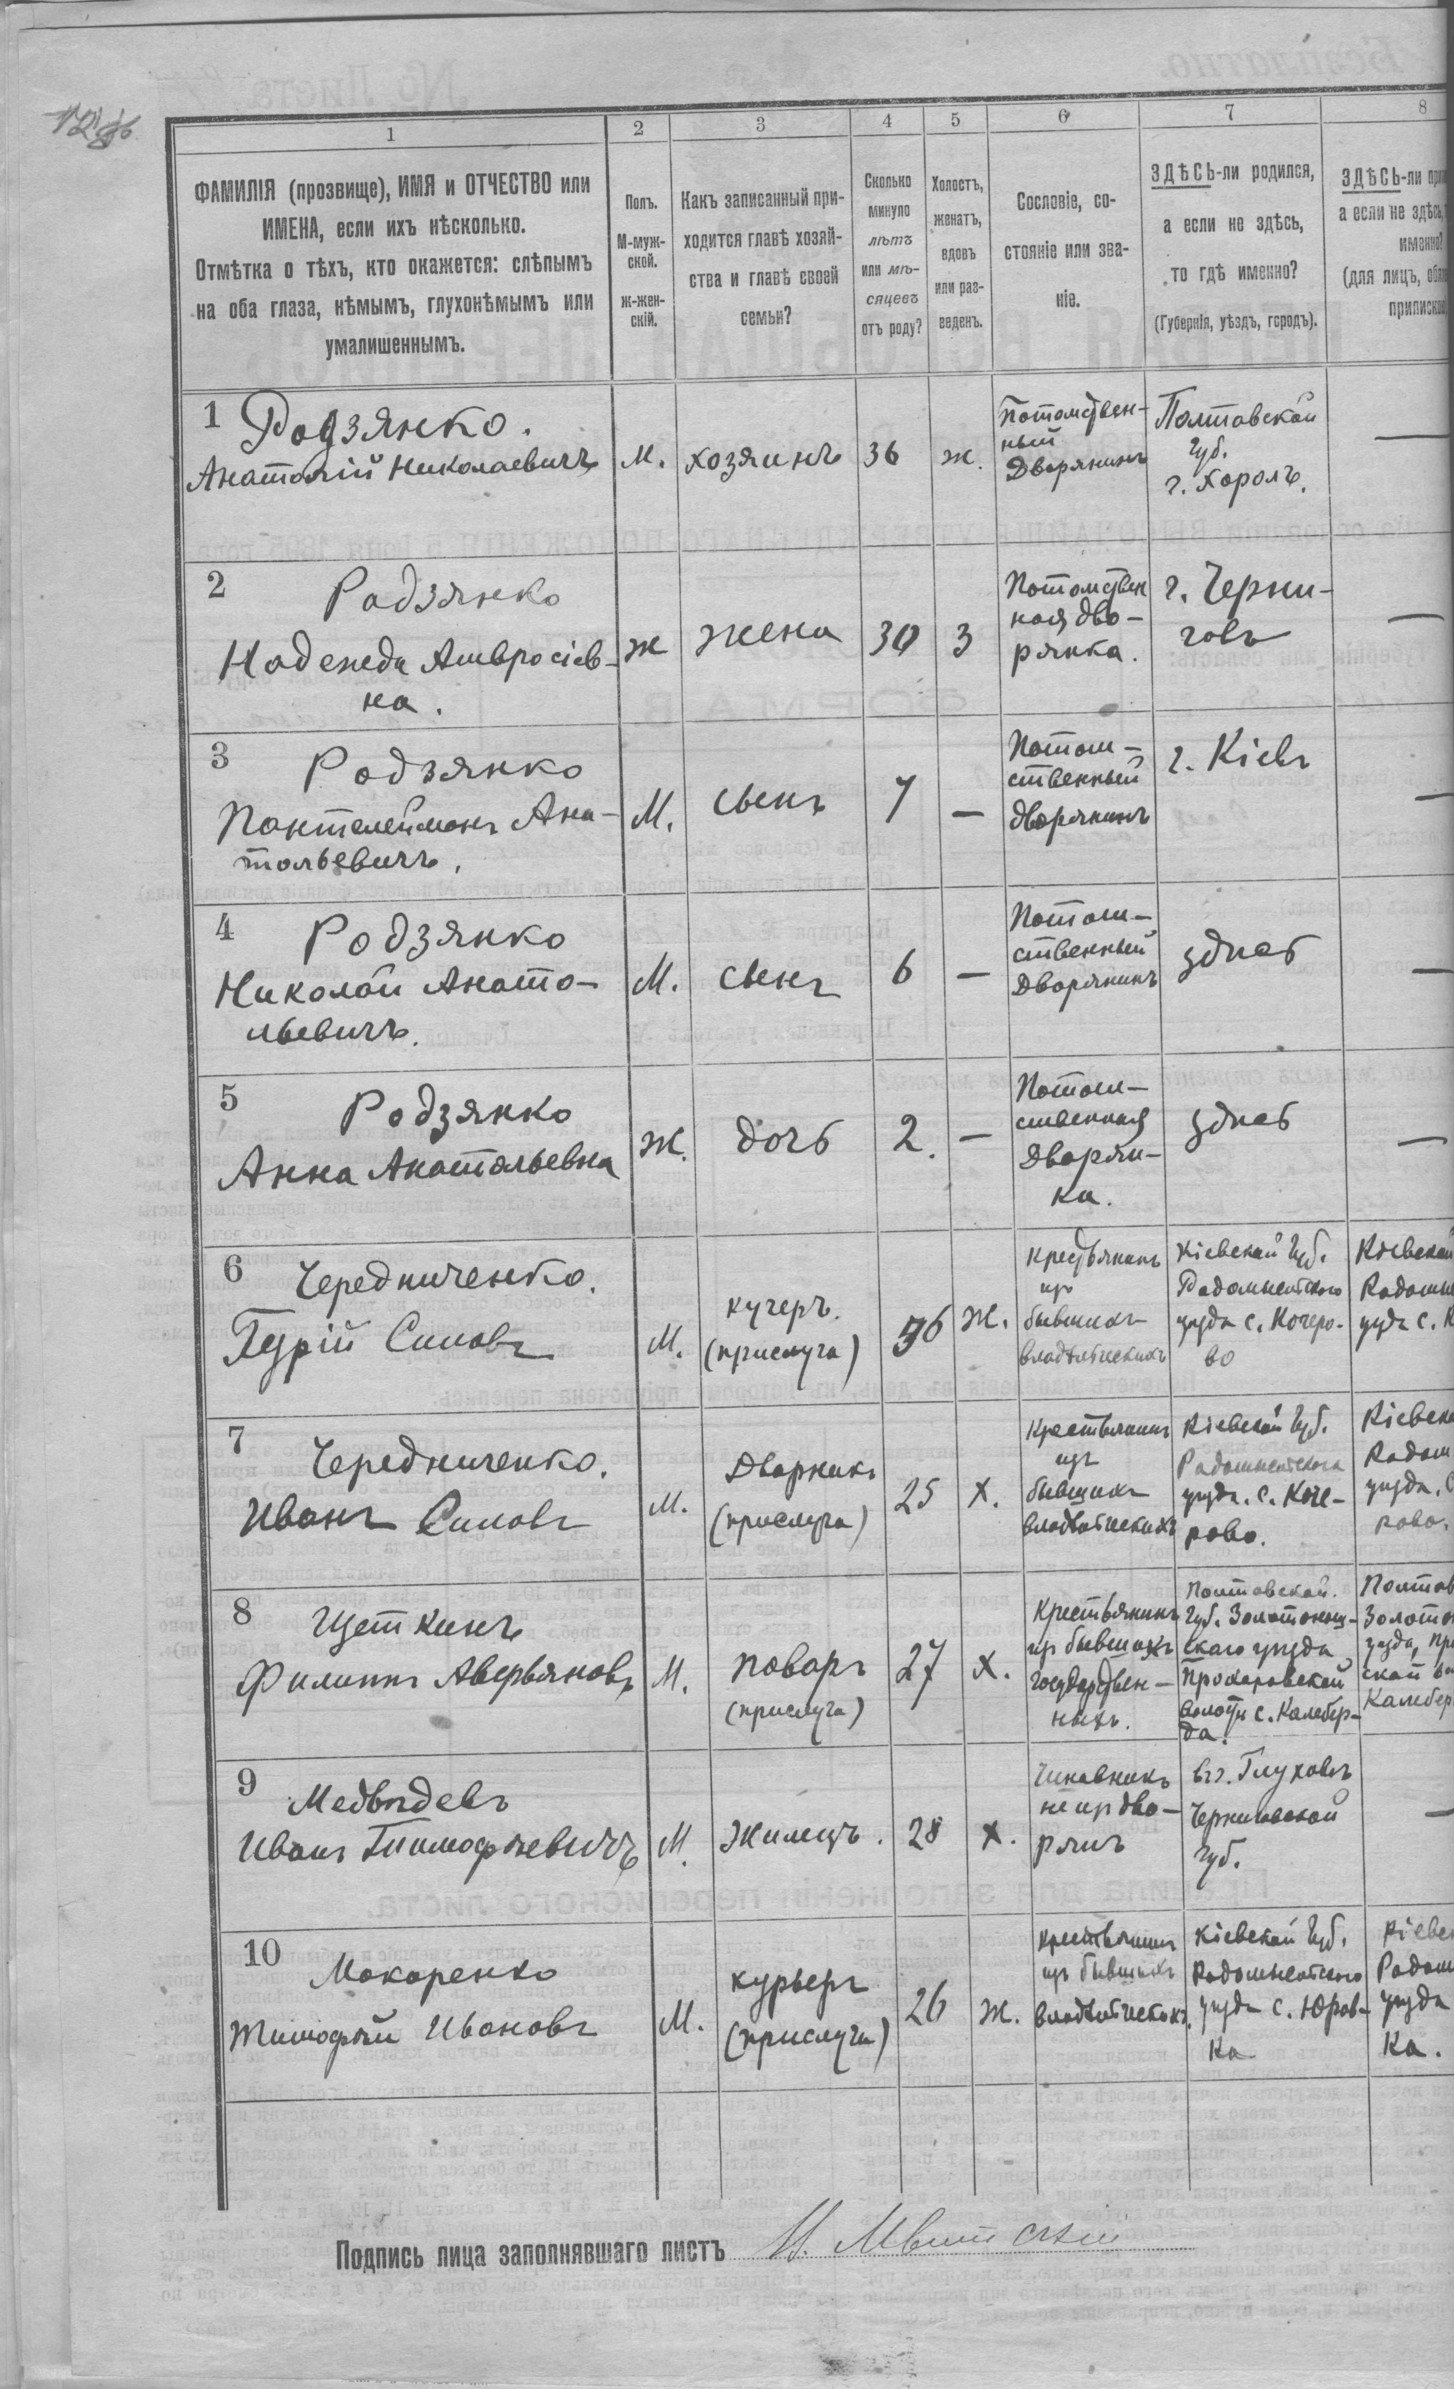 1
2
3
4
5
6
7
8
ФАМИЛІЯ (прозвище), ИМЯ и ОТЧЕСТВО или
ИМЕНА, если ихъ нѣсколько.
Отмѣтка о тѣхъ, кто окажется: слѣпымъ
на оба глаза, нѣмымъ, глухонѣмымъ или
умалишеннымъ.
Полъ.
М-муж-
ской.
ж-жен-
скій.
Какъ записанный при-
ходится главѣ хозяй-
ства и главѣ своей
семьи?
Сколько
минуло
лѣтъ
или мѣ-
сяцевъ
отъ роду?
Холостъ,
женатъ,
вдовъ
или раз-
веденъ.
Сословіе, со-
стояніе или зва-
ніе.
ЗДѢСЬ-ли родился,
а если не здѣсь,
то гдѣ именно?
(Губернія, уѣздъ, городъ).
ЗДѢСЬ-ли
а если не здѣсь,
именно?
(для лицъ,
1
Родзянко.
Анатолій Николаевичъ
М.
хозяинъ
36
ж.
Потомствен-
ный
Дворянинъ
Полтавской
Губ.
г. Хоролъ.
—
2
Родзянко
Надежда Амвросіев-
на.
Ж
Жена
30
З
Потомствен
ная дво-
рянка.
г. Черни-
говъ
—
3
Родзянко
Пантелеймонъ Ана-
тольевичъ.
М.
сынъ
7
—
Потом-
ственный
дворянинъ
г. Кіевъ
—
4
Родзянко
Николай Анато-
льевичъ.
М.
сынъ
6
—
Потом-
ственный
Дворянинъ
здѣсь
—
5
Родзянко
Анна Анатольевна
Ж.
дочь
2.
—
Потом-
ственная
Дворян-
ка.
здѣсь
—
6
Чередниченко.
Гурій Силовъ
М.
кучеръ.
(прислуга)
36
Ж.
Крестьянинъ
изъ
бывшихъ
владѣльческихъ
Кіевской Губ.
Радомысльскаго
уѣзда с. Кочеро-
во
Кіевской
уѣзда с.
7
Чередниченко.
Иванъ Силовъ
М.
Дворникъ
(прислуга)
25
Х.
Крестьянинъ
изъ
бывшихъ
владѣльческихъ
Кіевской Губ.
Радомысльскаго
уѣзда. с. Коче-
рово.
Радом
уѣзда.
рово.
8
Щеткинъ
Филиппъ Аверьяновъ
М.
поваръ
(прислуга)
27
Х.
Крестьянинъ
изъ бывшихъ
государствен-
ныхъ.
Полтавской.
Губ. Золотонош-
скаго уѣзда
Прохоровской
волости с. Калебер-
да.
Полтав
Золотон
уѣзда, Пр
ской во
Калебер
9
Медвѣдевъ
Иванъ Тимофѣевичъ
М.
Жилецъ.
28
х.
Чиновникъ
не изъ дво-
рянъ
въ г. Глуховъ
Черниговской
губ.
—
10
Макаренко
Тимофѣй Ивановъ
М.
курьеръ
(прислуга)
26
ж.
Крестьянинъ
изъ бывшихъ
владѣльческихъ.
Кіевской Губ.
Радомысльскаго
уѣзда с. Юров-
ка
Кіевск
Радом
уѣзда
ка.
Подпись лица заполнявшаго листъ